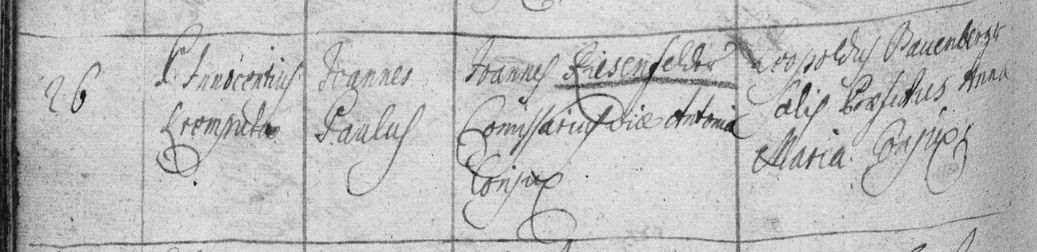 26
P Innocentius
Joannes
Paulus
Joannes Riesenfelder
Comissarius viæ Antonia
Conjux
Leopoldus Pauenberger
Salis Præfectus Anna
Maria Conjux